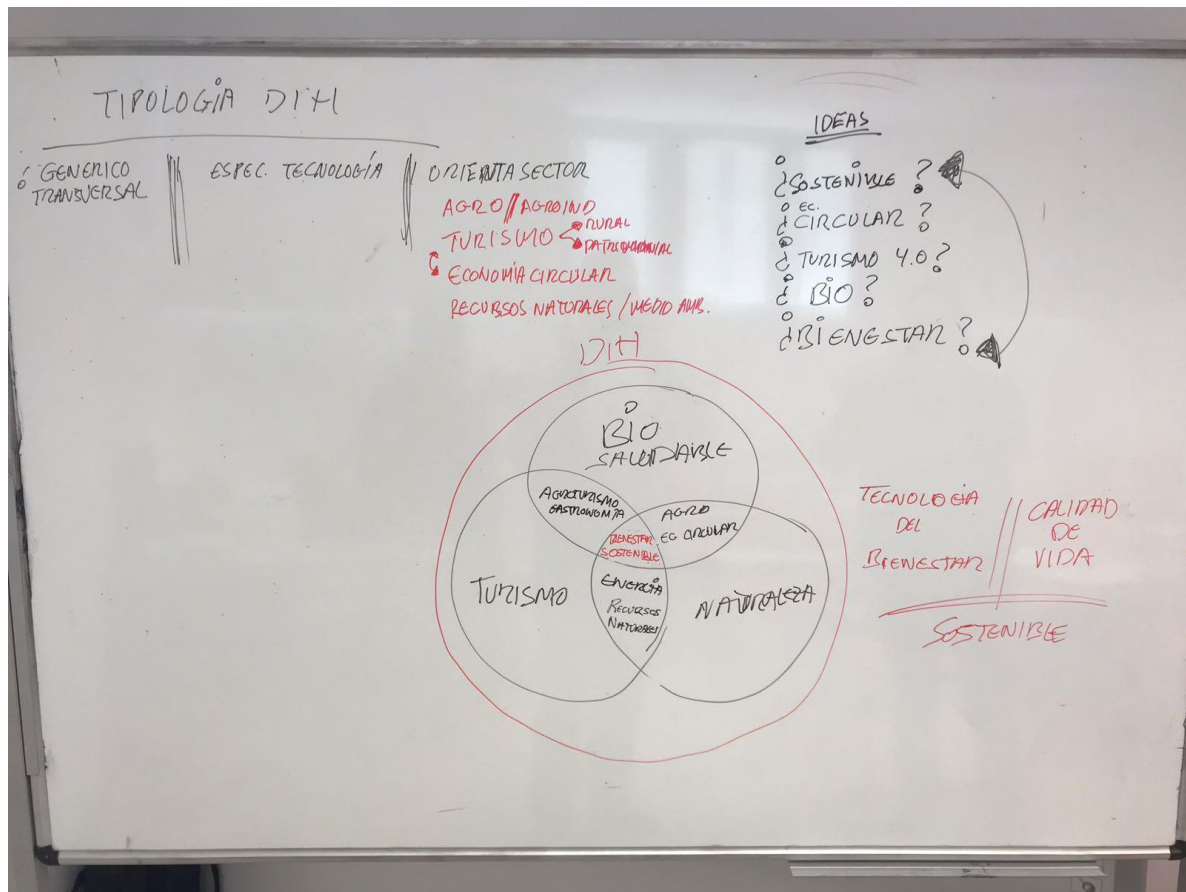 TIPOLOGÍA DIH
GENERICO
TRANSVERSAL
ESPEC. TECNOLOGÍA
ORIENTA SECTOR
AGRO // AGROIND
TURISMO
RURAL
PATRIMONIAL
ECONOMÍA CIRCULAR
RECURSOS NATURALES / MEDIO AMB.
IDEAS
¿SOSTENIBLE?
EC.
¿CIRCULAR?
¿TURISMO 4.0?
¿BIO?
¿BIENESTAR?
DIH
BIO
SALUDABLE
AGROTURISMO
GASTRONOMÍA
AGRO
EC CIRCULAR
BIENESTAR
SOSTENIBLE
TURISMO
ENERGÍA
RECURSOS
NATURALES
NATURALEZA
TECNOLOGÍA
DEL
BIENESTAR
CALIDAD
DE
VIDA
SOSTENIBLE